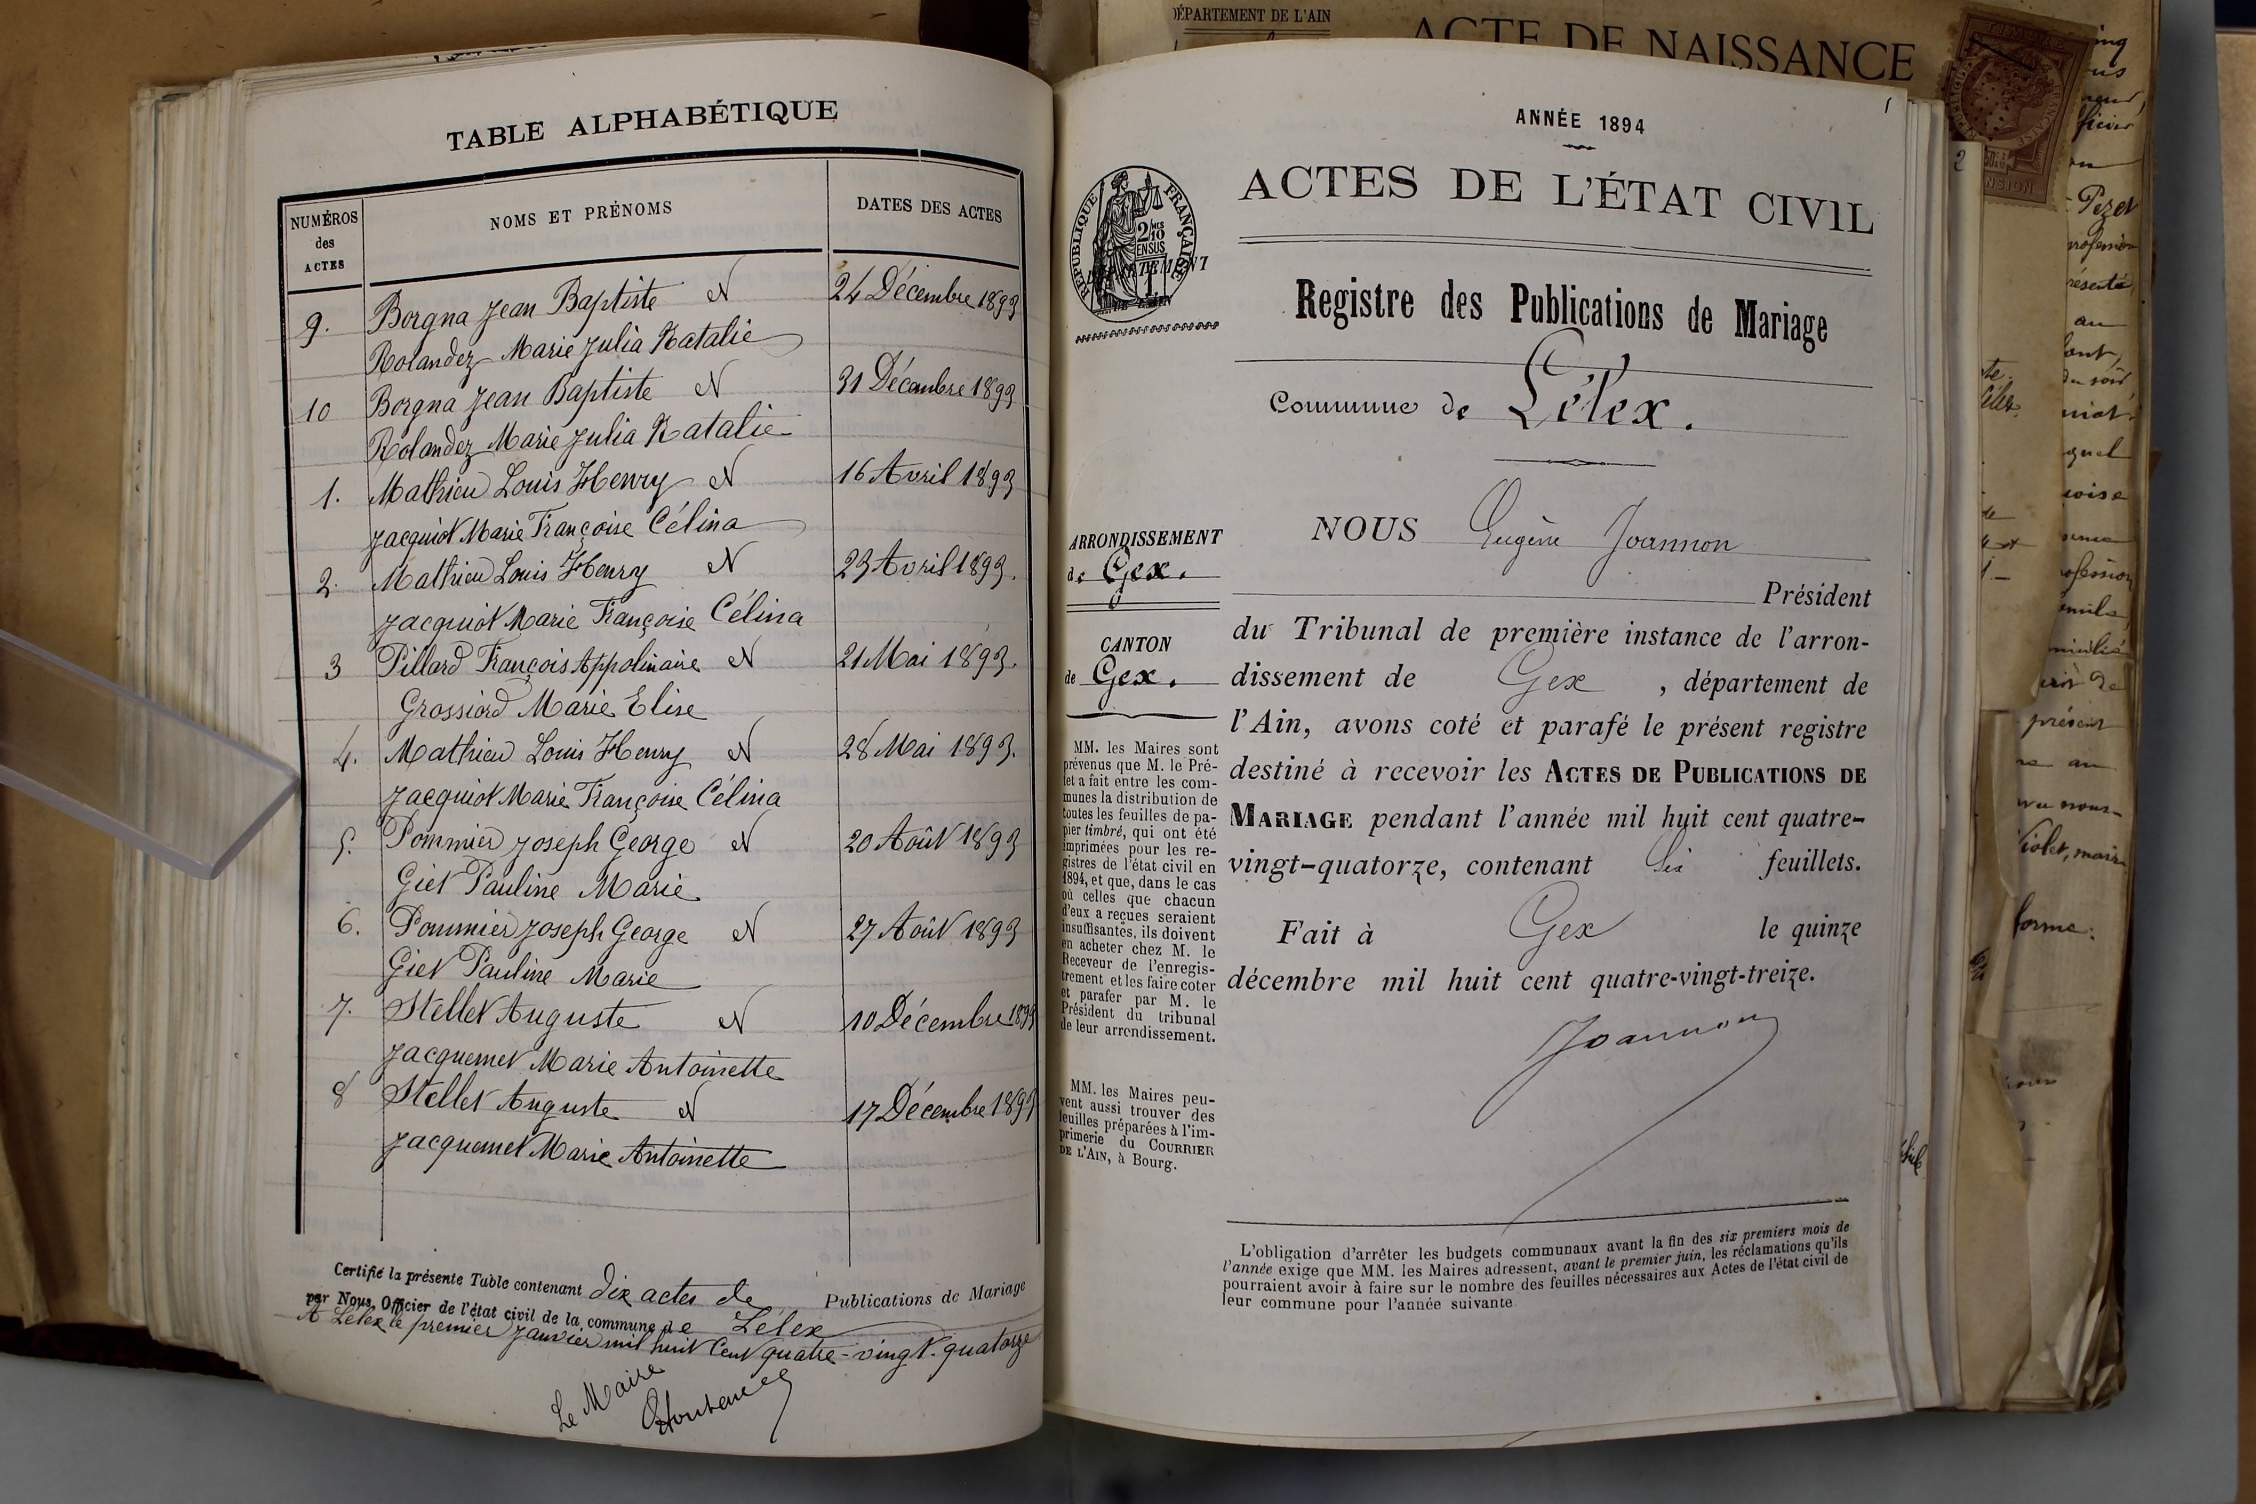 TABLE ALPHABÉTIQUE
NUMÉROS des ACTES
NOMS ET PRÉNOMS
DATES DES ACTES
9. Borgna Jean Baptiste N 24 Décembre 1893
Rolandez Marie Julia Natalie
10 Borgna Jean Baptiste N 31 Décembre 1893
Rolandez Marie Julia Natalie
1. Mathieu Louis Henry N 16 Avril 1893
Jacquiot Marie Françoise Célina
2. Mathieu Louis Henry N 23 Avril 1893.
Jacquiot Marie Françoise Célina
3 Pillard François Appolinaire N 21 Mai 1893.
Grossiord Marie Elise
4. Mathieu Louis Henry N 28 Mai 1893.
Jacquiot Marie Françoise Célina
5. Pommier Joseph George N 20 Août 1893
Giet Pauline Marie
6. Pommier Joseph George N 27 Août 1893
Giet Pauline Marie
7. Stellet Auguste N 10 Décembre 1893
Jacquemet Marie Antoinette
8 Stellet Auguste N 17 Décembre 1893
Jacquemet Marie Antoinette
Certifié la présente Table contenant dix actes de Publications de Mariage
par Nous, Officier de l'état civil de la commune de Lélex
A Lélex le premier Janvier mil huit Cent quatre-vingt-quatorze
Le Maire
DÉPARTEMENT DE L'AIN
ACTE DE NAISSANCE
1
ANNÉE 1894
ACTES DE L'ÉTAT CIVIL
RÉPUBLIQUE FRANÇAISE
2/10 EN SUS
DÉPARTEMENT
Registre des Publications de Mariage
Commune de Lélex.
ARRONDISSEMENT
de Gex.
CANTON
de Gex.
MM. les Maires sont
prévenus que M. le Pré-
fet a fait entre les com-
munes la distribution de
toutes les feuilles de pa-
pier timbré, qui ont été
imprimées pour les re-
gistres de l'état civil en
1894, et que, dans le cas
où celles que chacun
d'eux a reçues seraient
insuffisantes, ils doivent
en acheter chez M. le
Receveur de l'enregis-
trement et les faire coter
et parafer par M. le
Président du tribunal
de leur arrondissement.
MM. les Maires peu-
vent aussi trouver des
feuilles préparées à l'im-
primerie du COURRIER
DE L'AIN, à Bourg.
NOUS Eugène Joannon
Président
du Tribunal de première instance de l'arron-
dissement de Gex , département de
l'Ain, avons coté et parafé le présent registre
destiné à recevoir les ACTES DE PUBLICATIONS DE
MARIAGE pendant l'année mil huit cent quatre-
vingt-quatorze, contenant six feuillets.
Fait à Gex le quinze
décembre mil huit cent quatre-vingt-treize.
Joannon
L'obligation d'arrêter les budgets communaux avant la fin des six premiers mois de
l'année exige que MM. les Maires adressent, avant le premier juin, les réclamations qu'ils
pourraient avoir à faire sur le nombre des feuilles nécessaires aux Actes de l'état civil de
leur commune pour l'année suivante.
2
Pezet
an
présent
Violet, maire
forme: